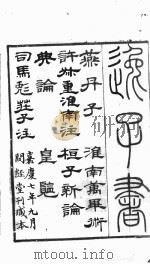 逸子書
燕丹子 淮南萬畢術
許叔重淮南注 桓子新論
典論 皇覽
司馬彪莊子注
嘉慶七年九月
問經堂刊成本